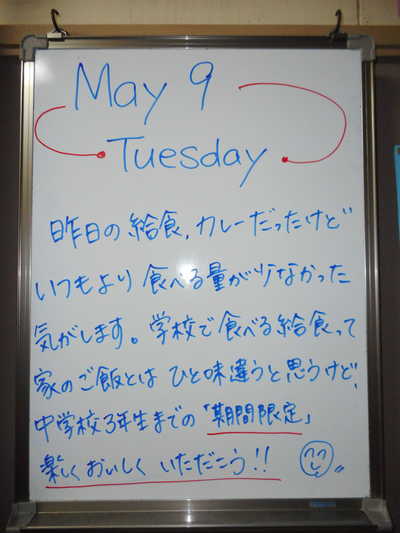 May 9
Tuesday
昨日の給食,カレーだったけど
いつもより食べる量が少なかった
気がします。学校で食べる給食って
家のご飯とは ひと味違うと思うけど、
中学校3年生までの「期間限定」
楽しくおいしく いただこう!!